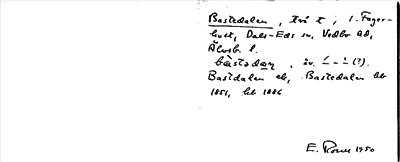 Bastedalen, två t; i. Fager-
hult, Dals-Eds sn, Vedbo hd,
Älvsb. l.
bàstedaɳ, äv. –́ – –̀ (?).
Bastdalen eb, Bastedalen hb
1851, hb 1886
E. 1950